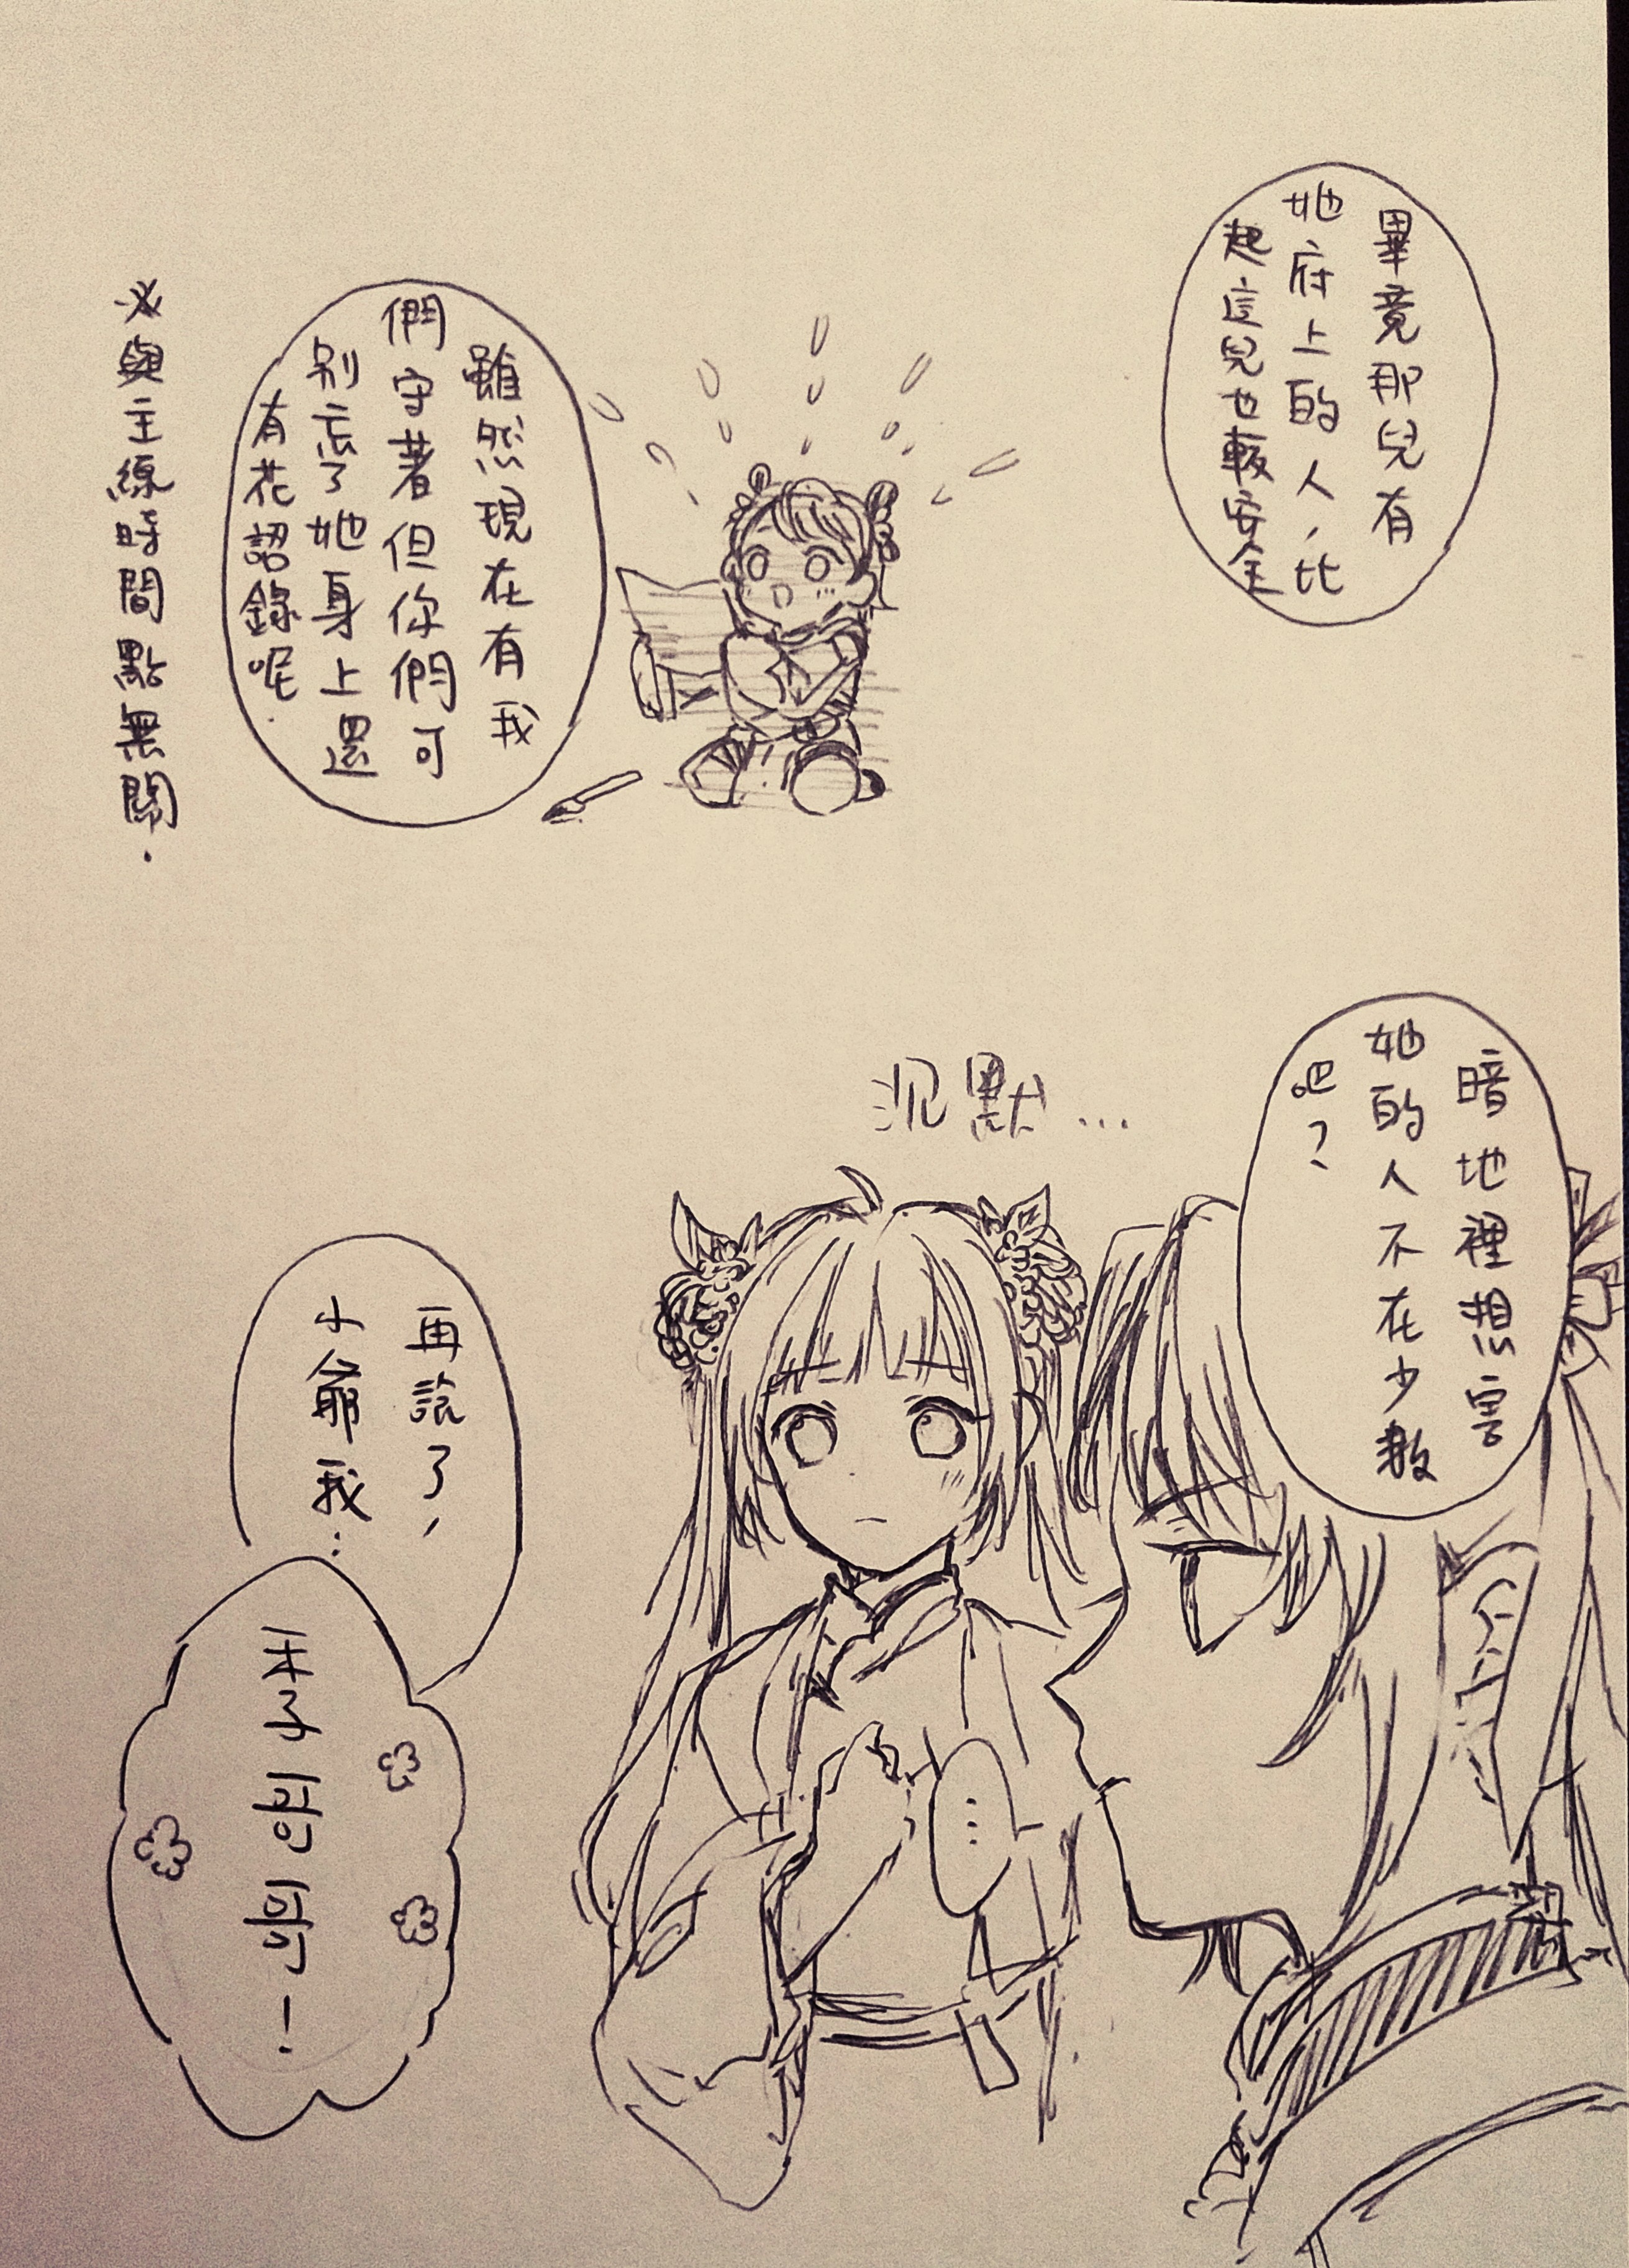 畢竟那兒有
她府上的人，比
起這兒也較安全
雖然現在有我
們守著但你們可
別忘了她身上還
有花認錄呢.
※與主線時間點無關.
暗地裡想害
她的人不在少數
吧？
沉默...
...
再說了，
小爺我...